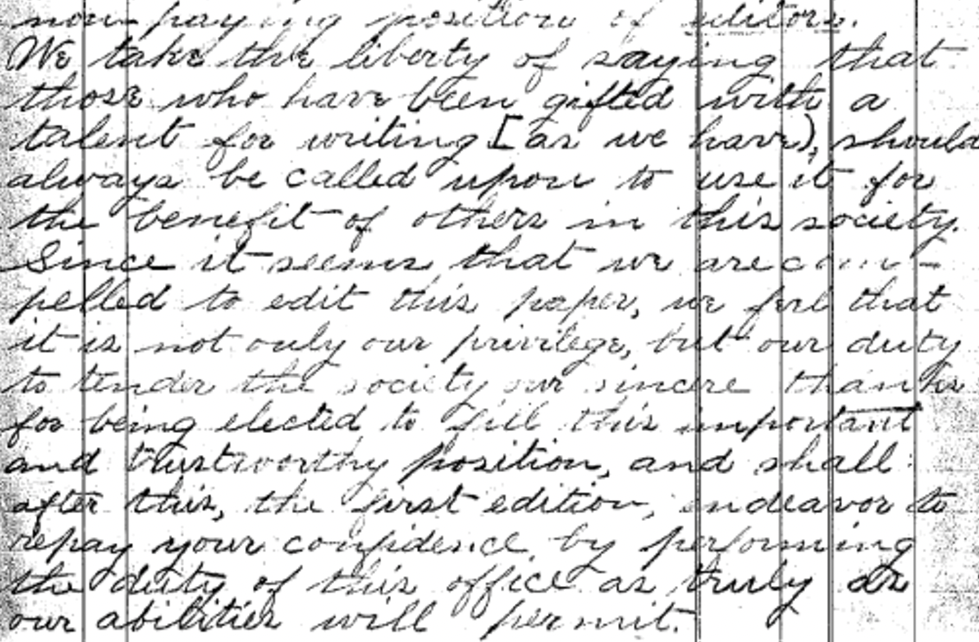 non-paying position of editors.
We take the liberty of saying that
those who have been gifted with a
talent for writing [as we have), should
always be called upon to use it for
the benefit of others in this society.
Since it seems that we are com-
pelled to edit this paper, we feel that
it is not only our privilege, but our duty
to tender the society our sincere thanks
for being elected to fill this important
and trustworthy position, and shall
after this, the first edition, endeavor to
repay your confidence by performing
the duty of this office as truly as
our abilities will permit.